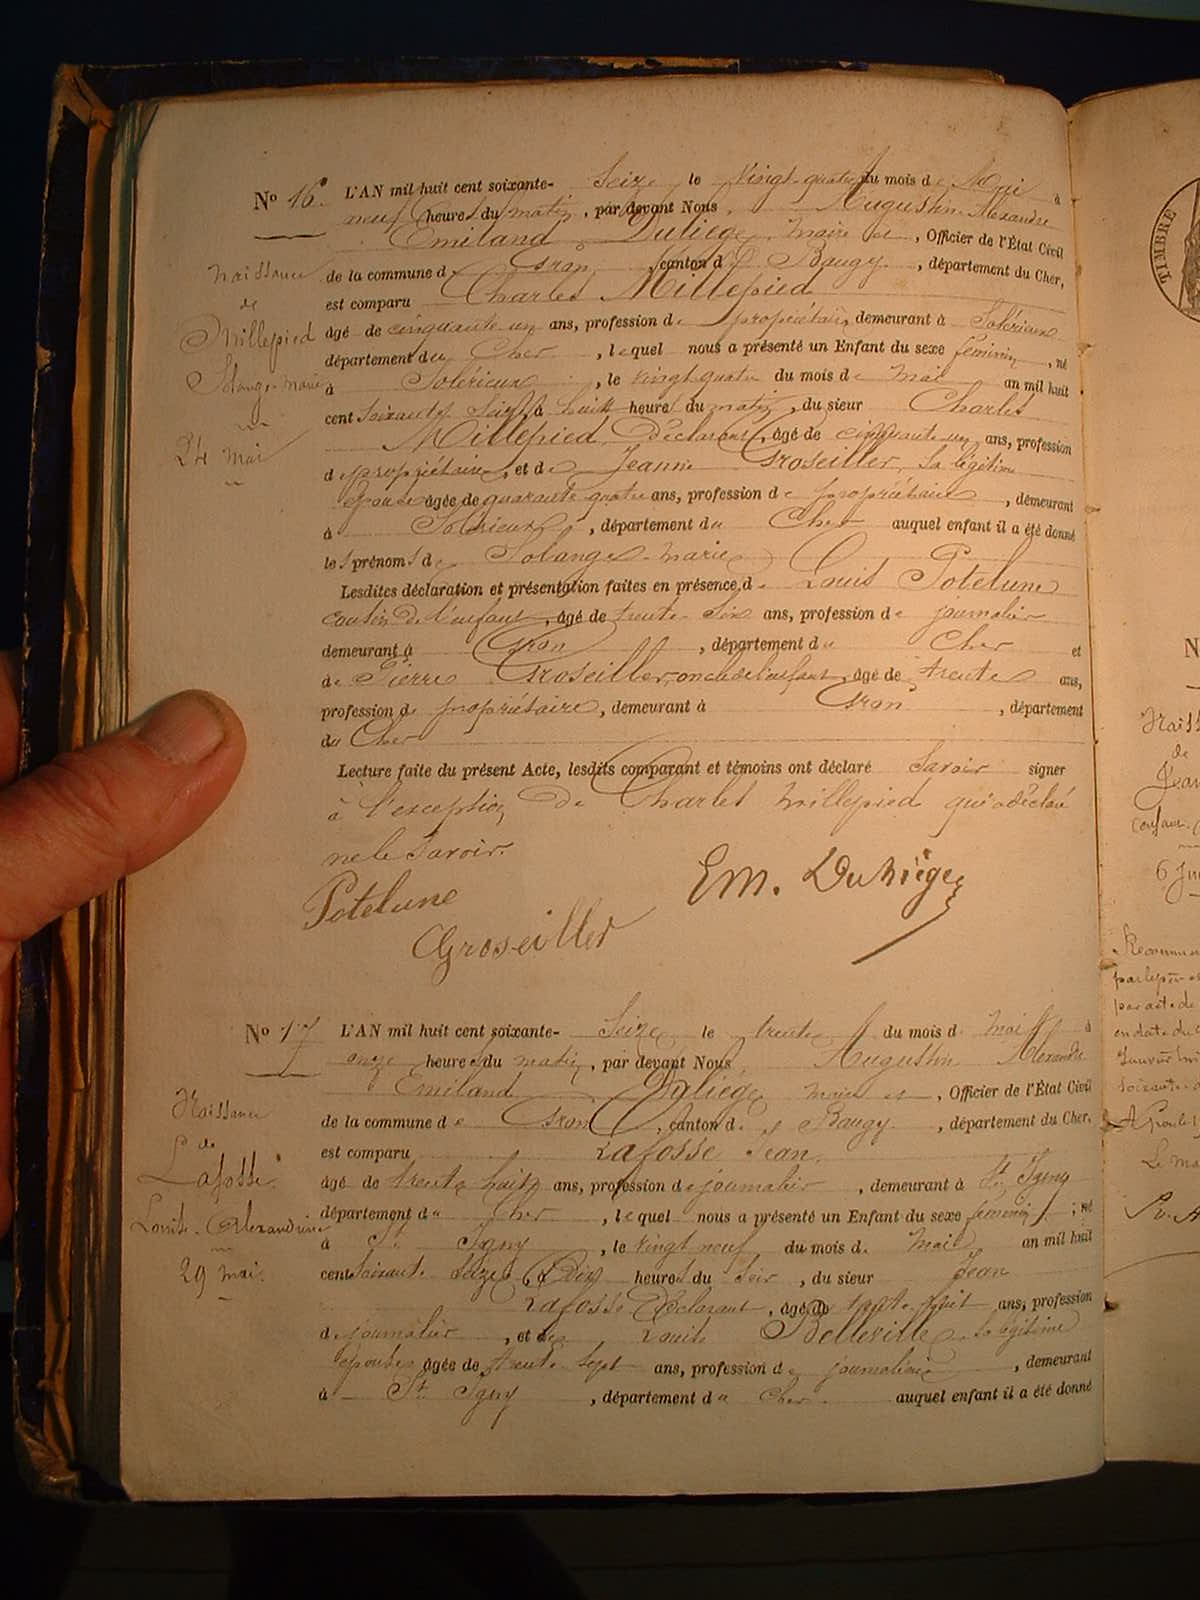 N° 16. L'AN mil huit cent soixante- Seize le Vingt-quatre du mois de Mai à
neuf heures du matin, par devant Nous, Augustin Alexandre
Emiland Duliège, maire et, Officier de l'État Civil
Naissance
de la commune de Gron, canton de Baugy, département du Cher,
de
est comparu Charles Millepied
Millepied
âgé de cinquante un ans, profession de propriétaire, demeurant à Solérieux
département du Cher, lequel nous a présenté un Enfant du sexe féminin, né
Solange-Marie
à Solérieux, le vingt quatre du mois de Mai an mil huit
cent Soixante Seize à huit heures du matin, du sieur Charles
24 Mai
Millepied Déclarant, âgé de cinquante un ans, profession
de propriétaire, et de Jeanne Groseiller, sa légitime
épouse âgée de quarante quatre ans, profession de propriétaire, demeurant
à Solérieux, département du Cher auquel enfant il a été donné
les prénoms de Solange-Marie
Lesdites déclaration et présentation faites en présence de Louis Potelune
cousin de l'enfant, âgé de trente six ans, profession de journalier
demeurant à Gron, département du Cher et
de Pierre Groseiller, oncle de l'enfant, âgé de trente ans,
profession de propriétaire, demeurant à Gron, département
du Cher
Lecture faite du présent Acte, lesdits comparant et témoins ont déclaré Savoir signer
à l'exception de Charles Millepied qui a déclaré
ne le Savoir.
Potelune
Em. Duliège
Groseiller
N° 17 L'AN mil huit cent soixante- Seize le trente du mois de Mai à
onze heures du matin, par devant Nous, Augustin Alexandre
Emiland Duliège maire et, Officier de l'État Civil
Naissance
de la commune de Gron, canton de Baugy, département du Cher,
de
est comparu Lafosse Jean
Lafosse
âgé de trente huit ans, profession de journalier, demeurant à St Igny
département du Cher, lequel nous a présenté un Enfant du sexe féminin, né
Louise-Alexandrine
à St Igny, le vingt neuf du mois de Mai an mil huit
29 mai.
cent soixante Seize à Dix heures du Soir, du sieur Jean
Lafosse Déclarant, âgé de trente huit ans, profession
de journalier, et de Louise Belleville sa légitime
épouse âgée de trente sept ans, profession de journalière, demeurant
à St Igny, département du Cher auquel enfant il a été donné
TIMBRE
N
de
Jean
6 Jui
par acte de
Le ma